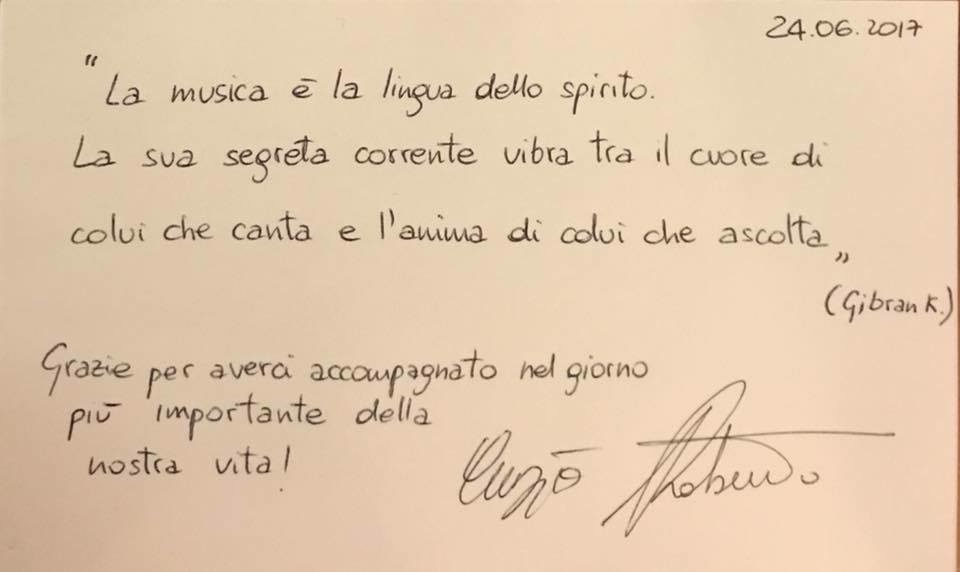 24.06.2017
"La musica è la lingua dello spirito.
La sua segreta corrente vibra tra il cuore di
colui che canta e l'anima di colui che ascolta"
(Gibran K.)
Grazie per averci accompagnato nel giorno
più importante della
nostra vita!